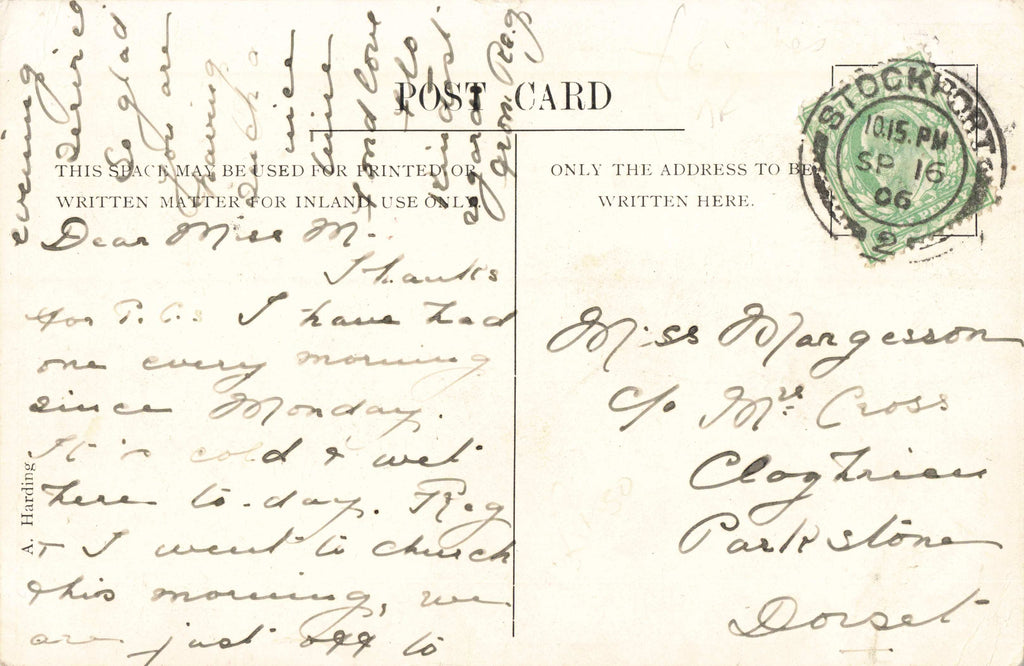 POST CARD
THIS SPACE MAY BE USED FOR PRINTED OR
WRITTEN MATTER FOR INLAND USE ONLY.
ONLY THE ADDRESS TO BE
WRITTEN HERE.
STOCKPORT
10.15. PM
SP 16
06
2
Dear Miss M.
Thanks
for P.C.s I have had
one every morning
since Monday.
It is cold & wet
here to-day. Reg
+ I went to church
this morning, we
are just off to
evening
service
So glad
you are
having
such a
nice
time
Fond love
& also
kindest
regards
from Reg
Miss Margesson
c/o Mrs Cross
Cloghrien
Parkstone
Dorset
A. Harding